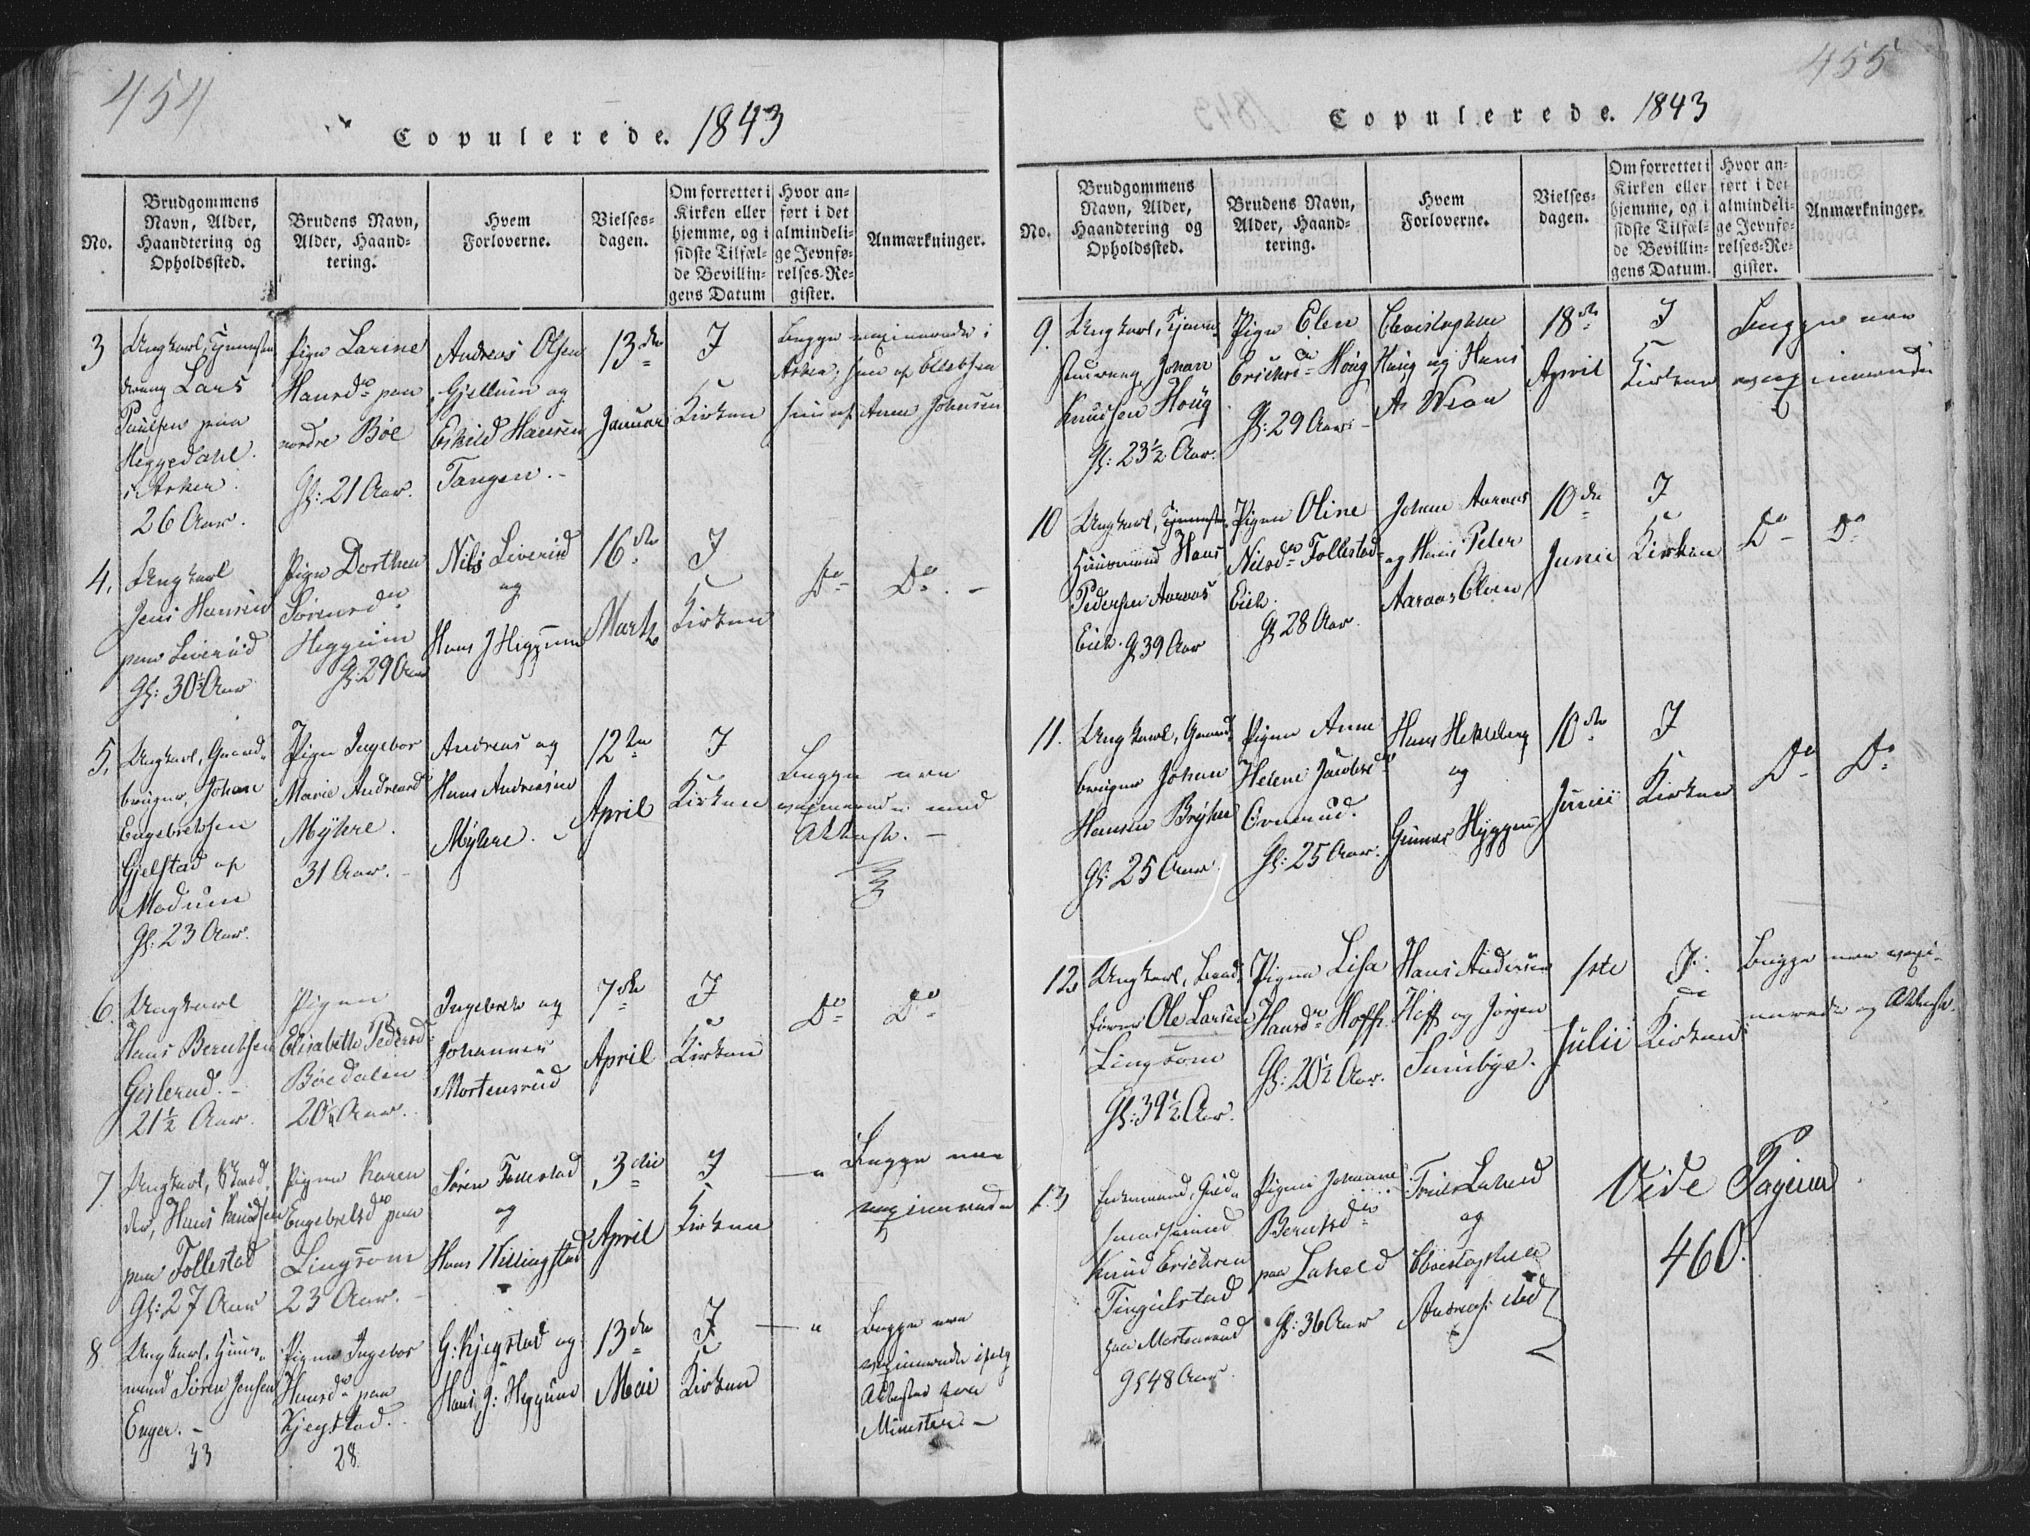 454
Copulerede. 1843
No.
Brudgommens
Navn, Alder,
Haandtering og
Opholdssted.
Brudens Navn,
Alder, Haand-
tering.
Hvem
Forloverne.
Vielses-
dagen.
Om forrettet i
Kirken eller
hjemme, og i
sidste Tilfæl-
de Bevillin-
gens Datum
Hvor an-
ført i det
almindeli-
ge Jevnfø-
relses-Re-
gister.
Anmærkninger.
3
Ungkarl,
dreng Lars
Paulsen paa
Heggedahl
i Asker.
26 Aar.
Pige Larine
Hansd. paa
nordre Böe
Gl: 21 Aar.
Andreas Olsen
Gjellum og
Eskild Hansen
Tangen. -
13de
Januar
I
Kirken
Begge vaxinerede i
Asker, han af
hun af Anne Johnsen
4,
Ungkarl
Jens Hansen
paa Liverud
Gl: 30½ Aar
Pige Dorthea
Sörensd.
Heggum
Gl: 29 Aar
Nils Liverud
og
Hans J Heggum
16de
Marts
I
Kirken
Do
Do. -
5,
Ungkarl, Gaard-
bruger, Johan
Engebretsen
Gjelstad af
Modum
Gl: 23 Aar.
Pige Ingebor
Marie Andreasd
Myhre.
31 Aar. -
Andreas og
Hans Andreasen
Myhre. -
12te
April
I
Kirken
Begge ere
vaxinerede med
Attest. -
6.
Ungkarl
Hans Berntsen
Gislerud. -
21½ Aar.
Pigen
Elisabeth Pedersd
Böedalen
20¼ Aar.
Ingebret og
Johannes
Mortensrud
7de
April
I
Kirken
Do
Do
7.
Ungkarl,
Hans Knudsen
paa Follestad
Gl: 27 Aar
Pigen Karen
Engebretsd paa
Lingsom
23 Aar. -
Sören Follestad
og
Hans Villingstad
3die
April
I
Kirken
- "
Begge ere
vaxinerede
8.
Ungkarl, Huus-
mand Sören Jensen
Enger. -
33
Pigen Ingebor
Hansd. paa
Kjegstad.
28
G. Kjegstad og
Hans J: Heggum
13de
Mai
I
Kirken
- "
Begge ere
vaxinerede ifölg
Attester fra
Minister. -
455
Copulerede. 1843
No.
Brudgommens
Navn, Alder,
Haandtering og
Opholdssted.
Brudens Navn,
Alder, Haand-
tering.
Hvem
Forloverne.
Vielses-
dagen.
Om forrettet i
Kirken eller
hjemme, og i
sidste Tilfæl-
de Bevillin-
gens Datum.
Hvor an-
ført i det
almindeli-
ge Jevnfø-
relses-Re-
gister.
Anmærkninger.
9.
Ungkarl,
Johan
Knudsen Höug
Gl: 23½ Aar.
Pige Elen
Erichsd. Höug
Gl: 29 Aar -
Christopher
Höug og Hans
A
18de
April
I
Kirken
Begge ere
vaxinerede
10
Ungkarl,
Huusmand Hans
Pedersen Aaraas
Eich. Gl 39 Aar
Pigen Oline
Nilsd. Follestad
Eich.
Gl 28 Aar.
Johan Aaraas
og Hans Peter
Aaraas
10de
Junii
I
Kirken
Do
Do
11.
Ungkarl, Gaard
bruger Johan
Hansen Bryhn
Gl: 25 Aar.
Pigen Anne
Helene Jacobsd
Ovnerud.
Gl: 25 Aar.
Hans Hekleberg
og
Gunner Hyggen
10de
Junii
I
Kirken
Do
Do
12
Ungkarl,
Ole Larsen
Lingsom
Gl: 39½ Aar.
Pigen Lisa
Hansd. Hoff.
Gl: 20½ Aar.
Hans Andersen
Hoff og Jörgen
Sundbye.
1ste
Julii
I
Kirken
Begge ere vaxi-
nerede og Attest.
13
Enkemand,
Knud Erichsen
Tingulstad
paa Mortensrud
Gl 48 Aar.
Pigen Johanne
Berntsd
paa Laheld
Gl: 36 Aar
Laheld
og
Christopher
Vide Pagina
460.